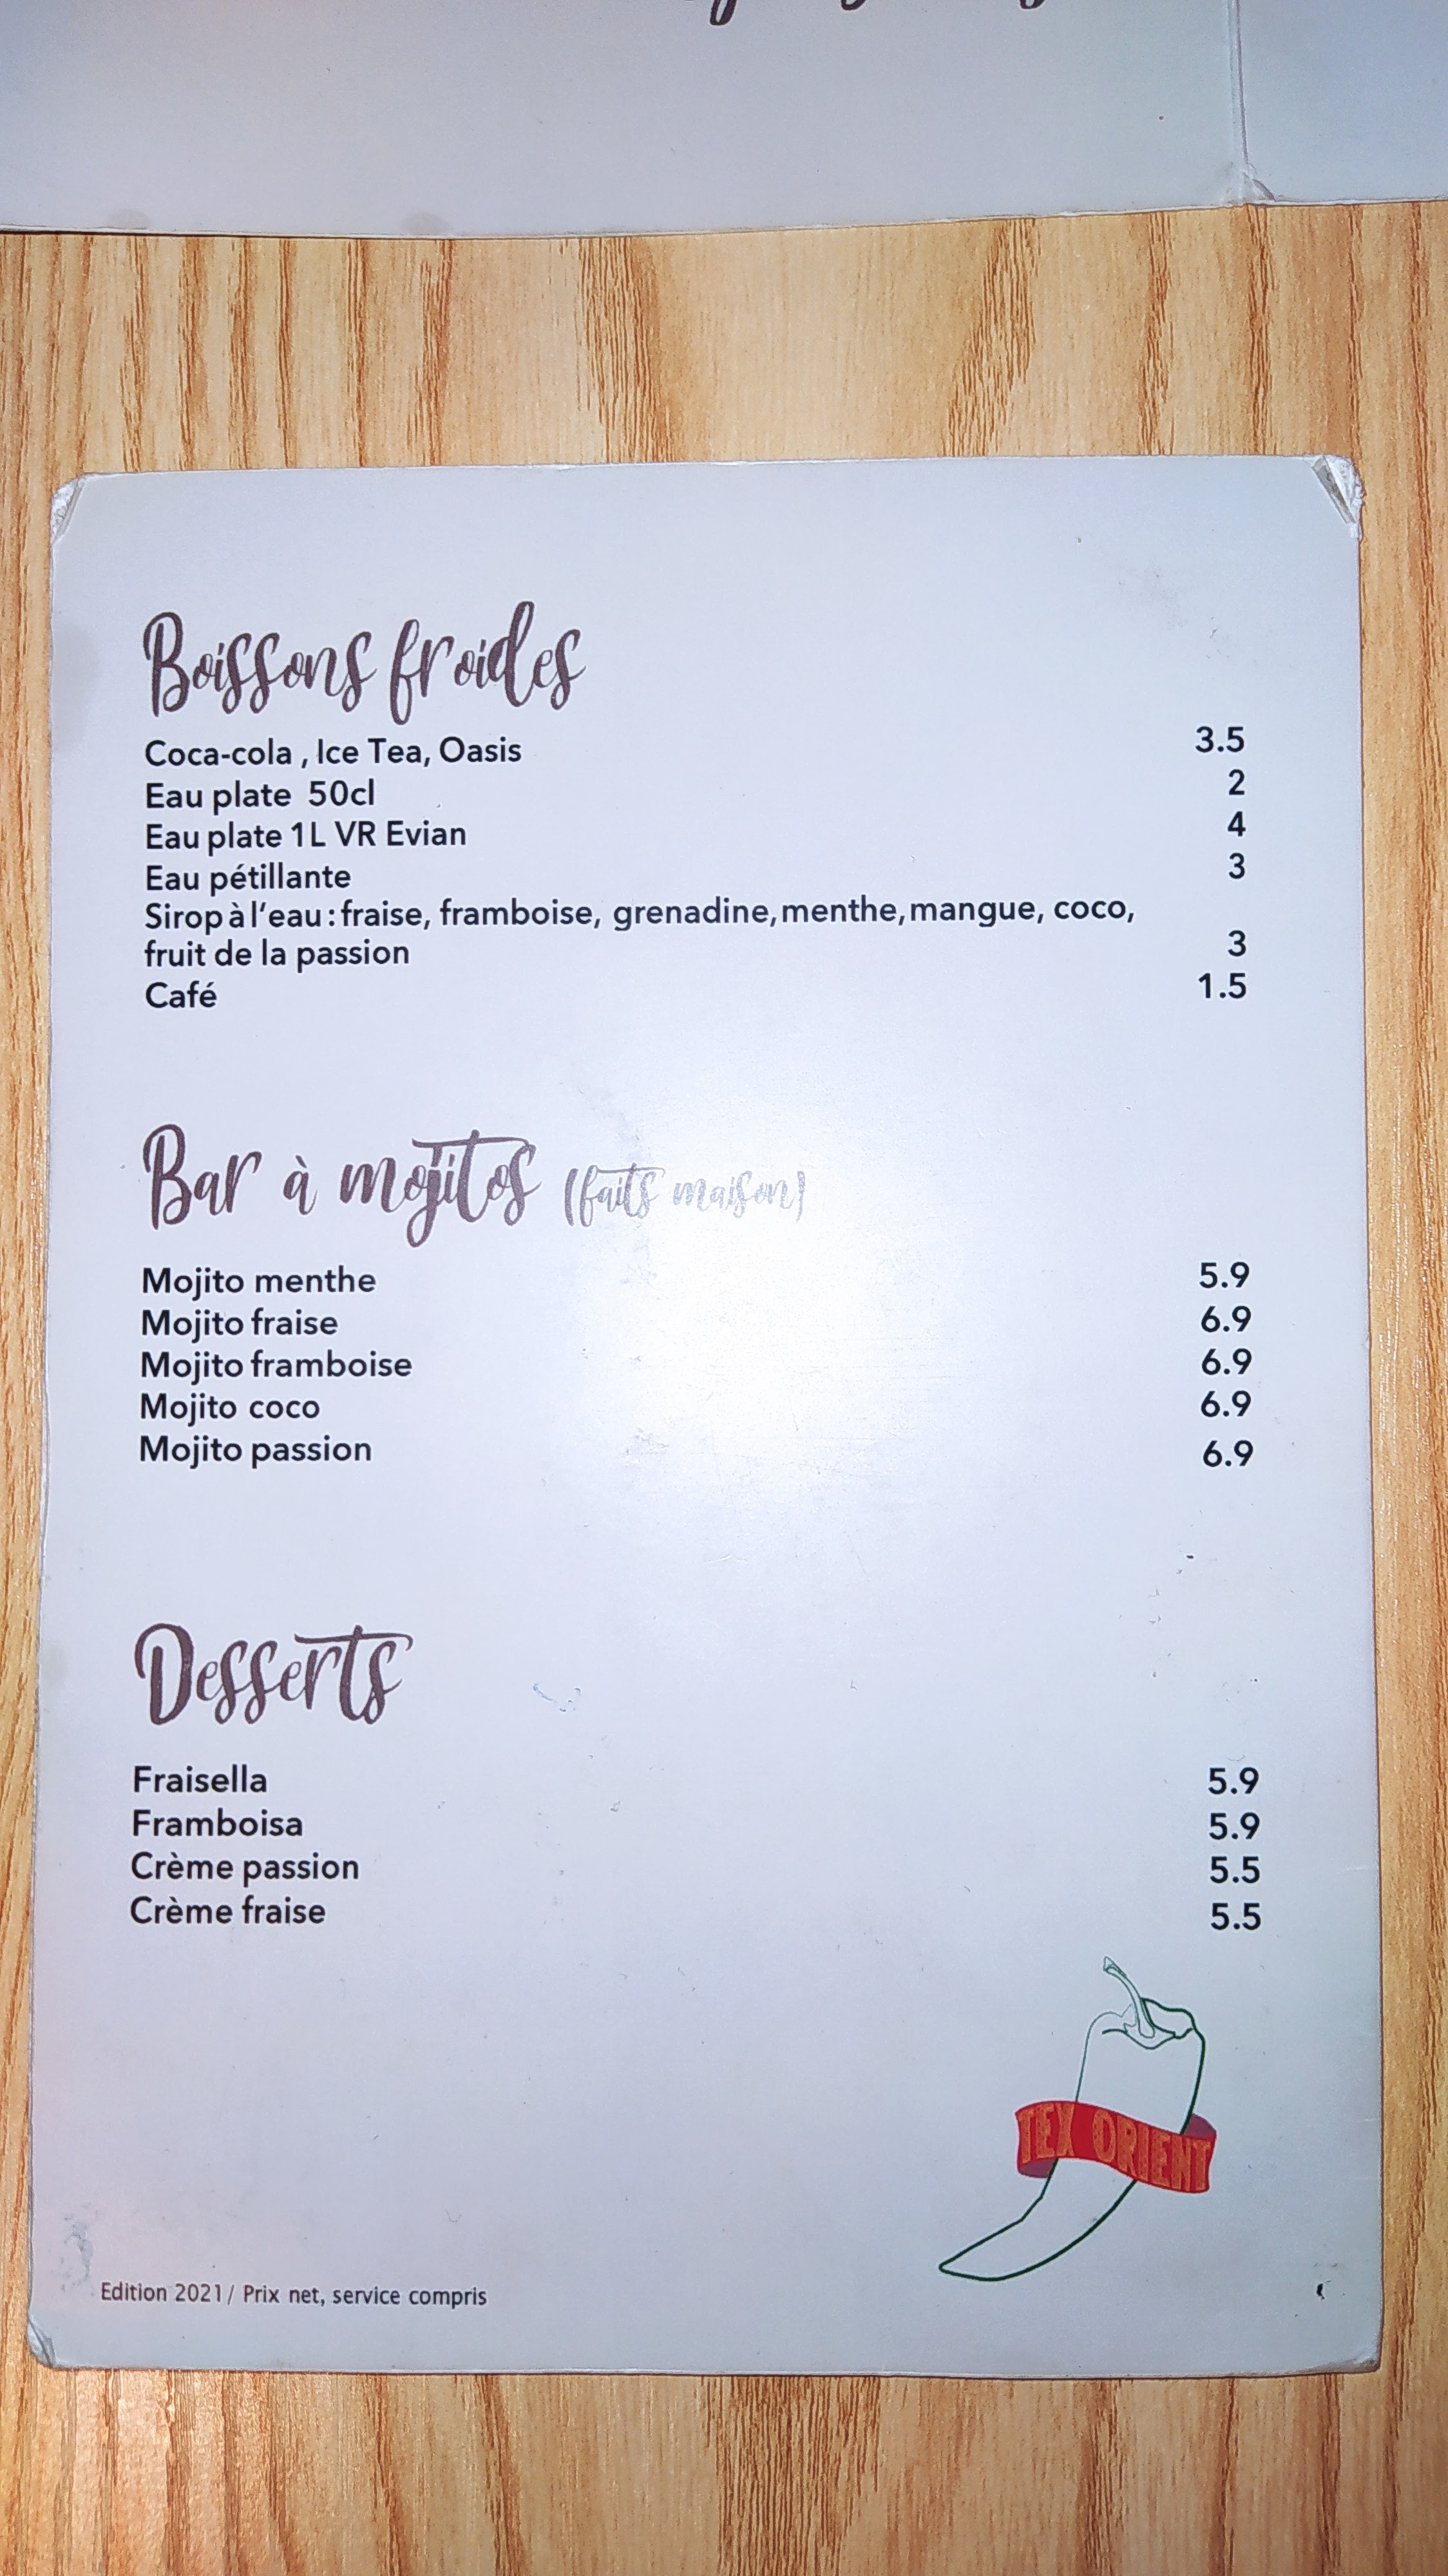 Boissons froides
Coca-cola , Ice Tea, Oasis 3.5
Eau plate 50cl 2
Eau plate 1L VR Evian 4
Eau pétillante 3
Sirop à l'eau : fraise, framboise, grenadine, menthe, mangue, coco,
fruit de la passion 3
Café 1.5
Bar à mojitos (faits maison)
Mojito menthe 5.9
Mojito fraise 6.9
Mojito framboise 6.9
Mojito coco 6.9
Mojito passion 6.9
Desserts
Fraisella 5.9
Framboisa 5.9
Crème passion 5.5
Crème fraise 5.5
TEX ORIENT
Edition 2021/ Prix net, service compris